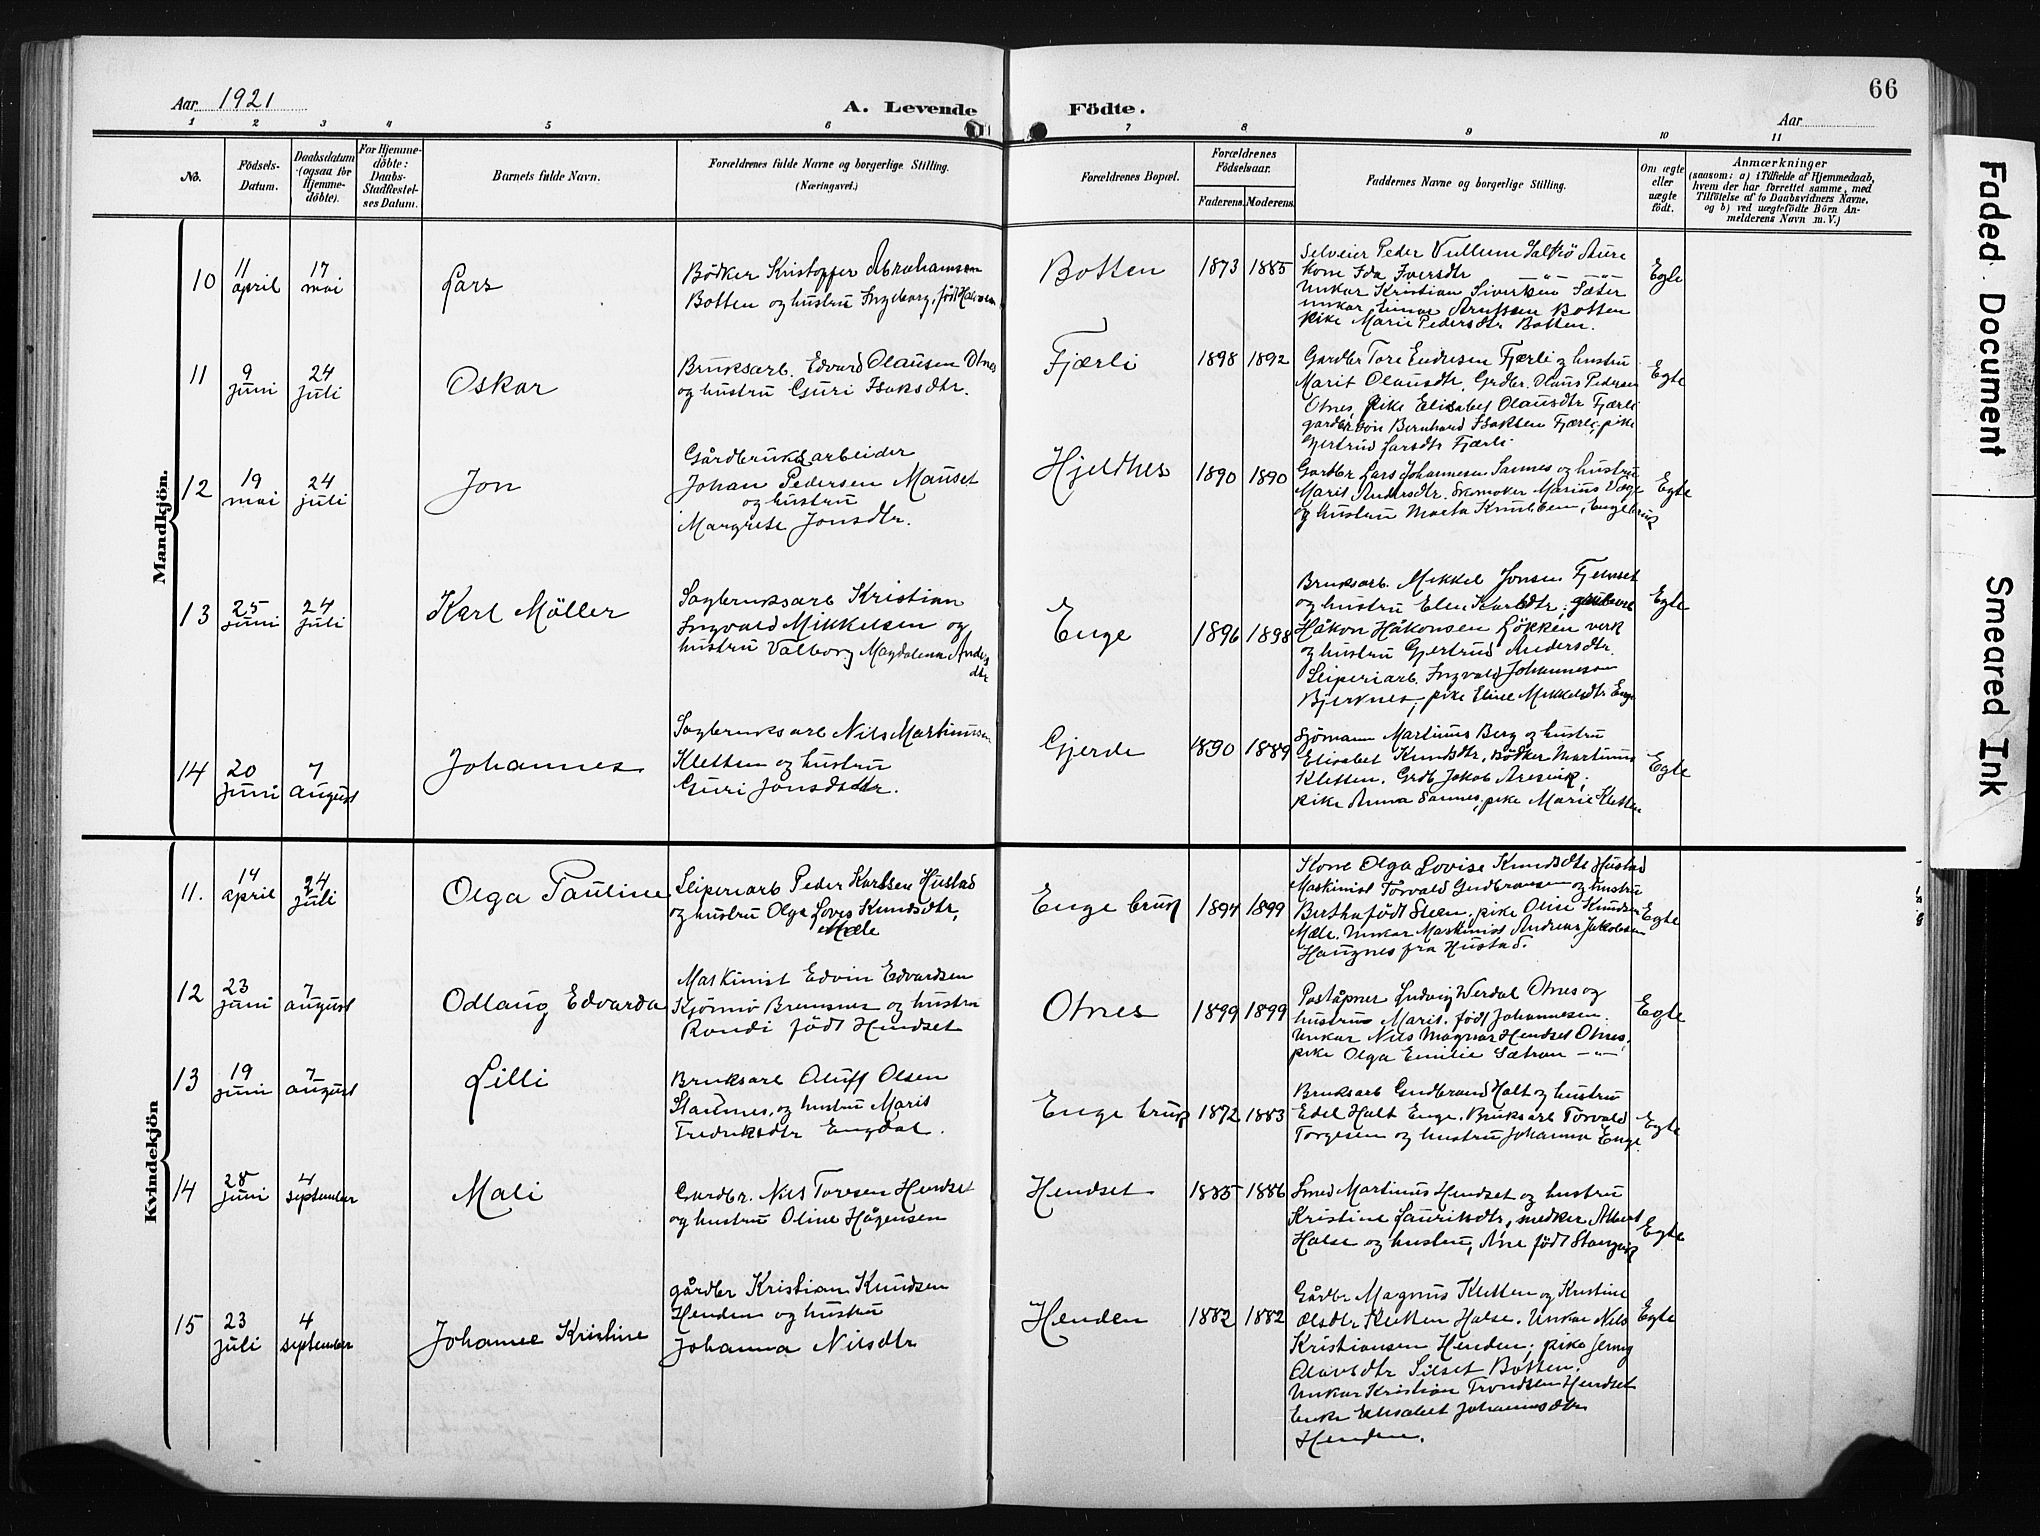 66
Aar 1921
A. Levende Födte.
Aar
1 2 3 4 5 6 7 8 9 10 11
No.
Födsels-
Datum.
Daabsdatum
(ogsaa for
Hjemme-
döbte).
For Hjemme-
döbte:
Daabs-
Stadfæstel-
ses Datum.
Barnets fulde Navn.
Forældrenes fulde Navne og borgerlige Stilling.
(Næringsvei.)
Forældrenes Bopæl.
Forældrenes
Födselsaar.
Faderens.
Moderens.
Faddernes Navne og borgerlige Stilling.
Om ægte
eller
uægte
födt.
Anmærkninger
(saasom: a) i Tilfælde af Hjemmedaab,
hvem der har forrettet samme, med
Tilföielse af to Daabsvidners Navne,
og b) ved uægtefödte Börn An-
melderens Navn m. V.)
Mandkjön.
10
11
april
17
mai
Lars
Bödker Kristoffer Abrahamsen
Botten og hustru Ingeborg, född
Botten
1873
1885
Selveier Peder Vullum Aure
Kone Ida Iversdtr
Unkar Kristian Siversen Sæter
unkar Einar Arntsen Botten
Pike Marie Pedersdtr Botten.
Egte
11
9
juni
24
juli
Oskar
Bruksarb. Edvard Olausen Otnes
og hustru Guri Isaksdtr.
Fjærli
1898
1892
Gardbr Tore Endresen Fjærli og hustru
Marit Olausdtr, Grdbr. Olaus Pedersen
Otnes, pike Elisabet Olausdtr Fjærli
gardbr. sön Bernhard Isaksen Fjærli, pike
Gjertrud Larsdtr Fjærli.
Egte
12
19
mai
24
juli
Jon
Gårdbruksarbeider
Johan Pedersen Mauset
og hustru
Margrete Jonsdtr.
Hjeldnes
1890
1890
Gardbr Lars Johannesen Sannes og hustru
Marit Andersdtr. Skomaker Marius
og hustru Marta Knutsen, Engebruk
Egte
13
25
juni
24
juli
Karl Möller
Sagbruksarb Kristian
Ingvald Mikkelsen og
hustru Valborg Magdalena Anders
dtr
Enge
1896
1898
Bruksarb. Mikkel Jonsen Fjelnset
og hustru Elen Karlsdtr,
Håkon Håkonsen Lökken verk
og hustru Gjertrud Andersdtr.
Sliperiarb. Ingvald Johannesen
Bjerknes, pike Eline Mikkelsdtr Enge
Egte
14
20
juni
7
august
Johannes
Sagbruksarb Nils Martinusen
Kletten og hustru
Guri Jonsdtr.
Gjerde
1890
1889
Sjömann Martinus Berg og hustru
Elisabet Knudsdtr, Bödker Martinus
Kletten, Grdb Jakob Aresvik,
pike Anna Sannes, pike Marie Kletten
Egte
Kvindekjön
11.
14
april
24
juli
Olga Pauline
Sliperiarb Peder Karlsen Hustad
og hustru Olga Lovis Knudsdtr,
Mæle
Enge bruk
1894
1899
Kone Olga Lovise Knudsdtr Hustad
Maskinist Torvald Gudbransen og hustru
Bertha född Steen, pike Olise Knudsen
Mæle. Unkar Maskinist Andreas Jakobsen
Haugnes fra Hustad.
Egte
12
23
juni
7
august
Odlaug Edvarda
Maskinist Edvin Edvardsen
Bremsnes og hustru
Randi född Hendset
Otnes
1899
1899
Poståpner Ludvig Werdal Otnes og
hustru Marit, född Johannesen.
Unkar Nils Magnar Hendset Otnes,
pike Olga Emilie Sætran —"—
Egte
13
19
juni
7
august
Lilli
Bruksarb Oluff Olsen
Staumes, og hustru Marit
Fredriksdtr Engdal.
Enge bruk
1872
1883
Bruksarb Gudbrand Holt og hustru
Edel Holt Enge. Bruksarb Torvald
Torgesen og hustru Johanna Enge.
Egte
14
28
juni
4
september
Mali
Gardbr. Nils Toresen Hendset
og hustru Oline Hågensen
Hendset
1885
1886
Smed Martinus Hendset og hustru
Kristine Lauriksdtr, snedker Albert
Halse og hustru, Ane född Stangvik
Egte
15
23
juli
4
september
Johanne Kristine
gårdbr Kristian Knudsen
Henden og hustru
Johanna Nilsdtr
Henden
1882
1882
Gårdbr Magnus Kletten og Kristine
Olsdtr Kletten Halse. Unkar Nils
Kristiansen Henden, pike Jenny
Olavsdtr Silset Botten,
Unkar Kristian Trondsen Hendset
Enke Elisabet Johannesdtr
Henden.
Egte
Faded Document
Smeared Ink